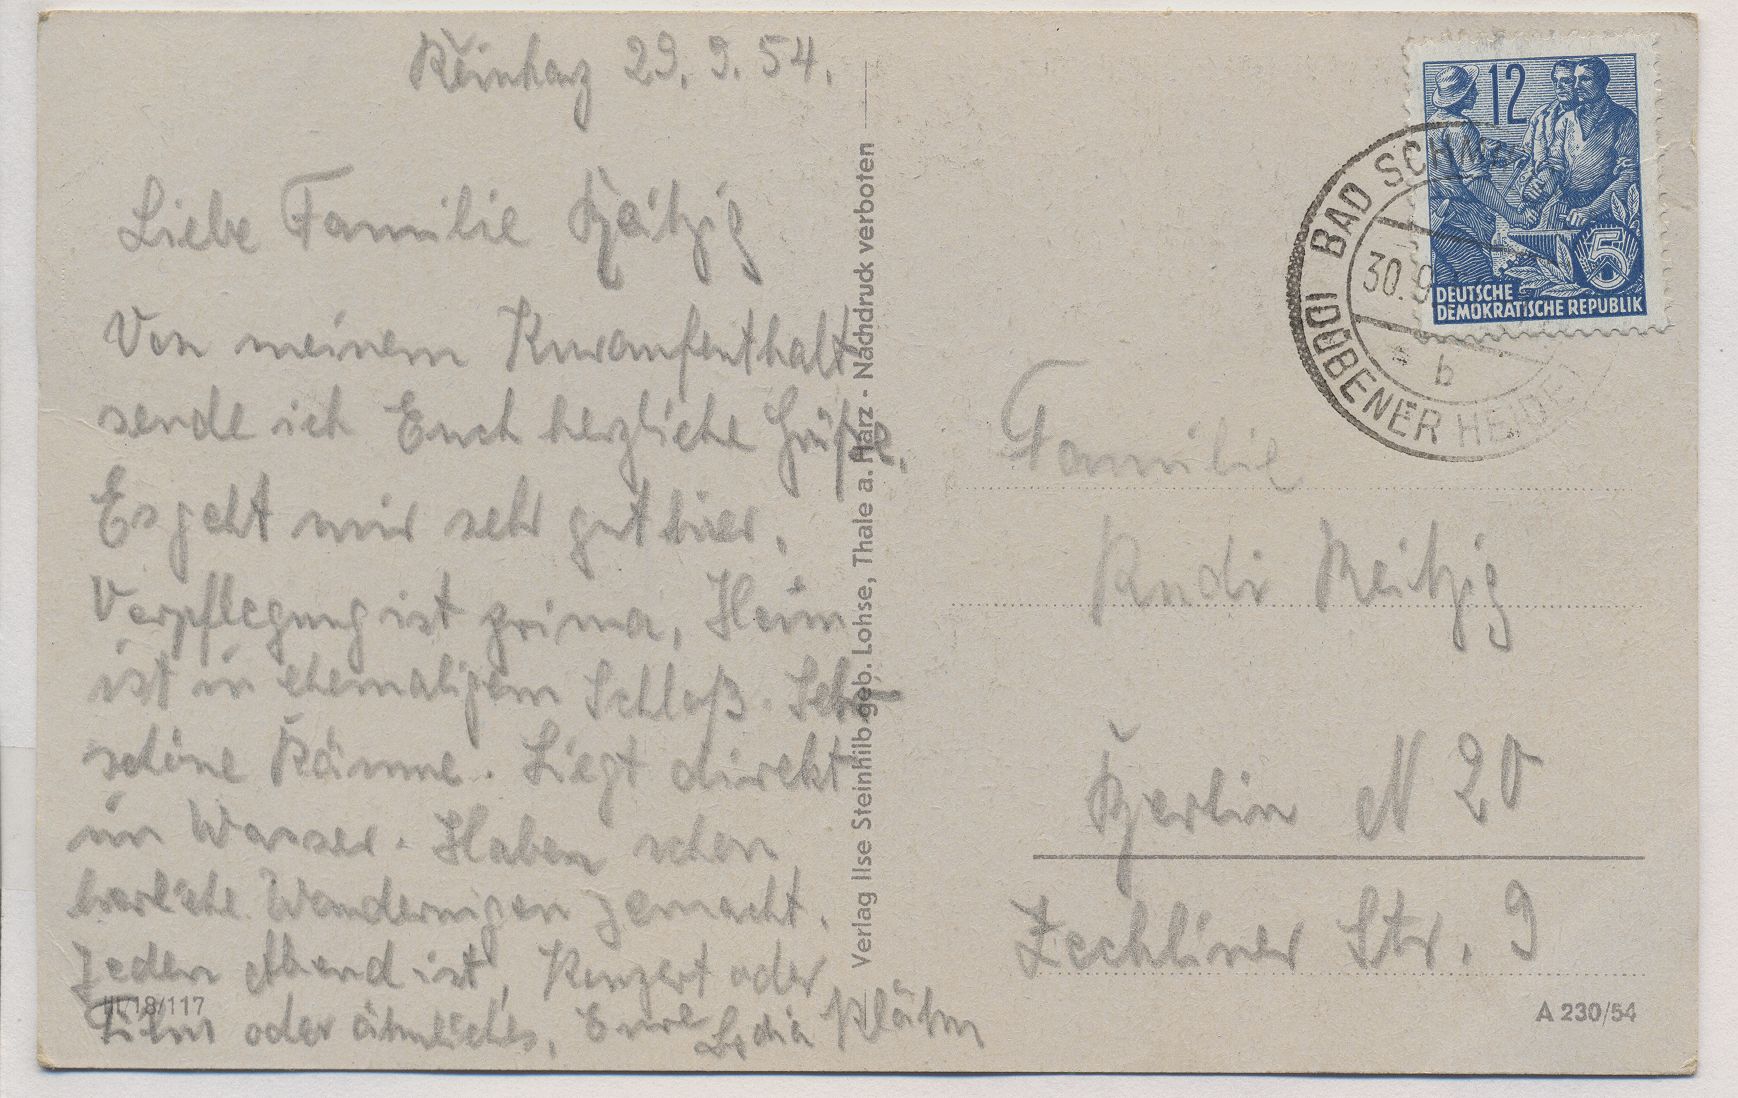 Reinharz 29. 9. 54.
Liebe Familie
Von meinem Kuraufenthalt
sende ich Euch herzliche Grüße.
Es geht mir sehr gut hier.
Verpflegung ist prima, Heim
ist in ehemaligem Schloß. Sehr
schöne Räume. Liegt direkt
im Wasser. Haben schon
herrliche Wanderungen gemacht.
Jeden Abend ist, Konzert oder
Film oder ähnliches, Eure Lydia Klähn
III/18/117
Verlag Ilse Steinhilb geb. Lohse, Thale a. Harz - Nachdruck verboten
12
5
DEUTSCHE
DEMOKRATISCHE REPUBLIK
BAD SCHM
(DÜBENER HEIDE)
30.9
b
Familie
Rudi Reitzig
Berlin N 20
Zechliner Str. 9
A 230/54